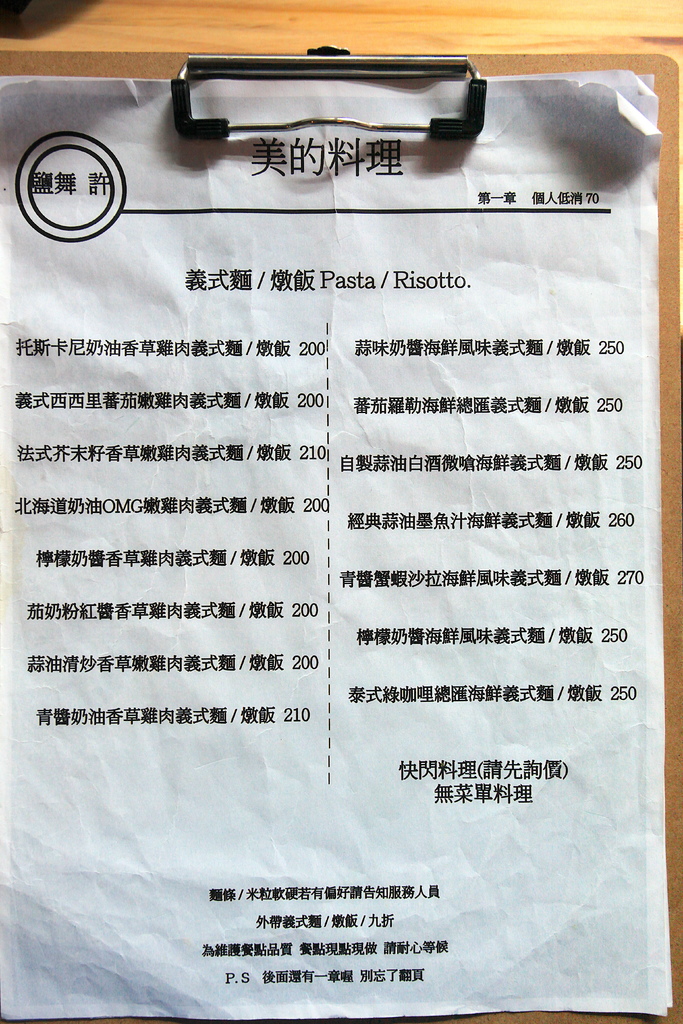 美的料理
鹽舞 許
第一章 個人低消 70
義式麵 / 燉飯 Pasta / Risotto.
托斯卡尼奶油香草雞肉義式麵 / 燉飯 200
義式西西里蕃茄嫩雞肉義式麵 / 燉飯 200
法式芥末籽香草嫩雞肉義式麵 / 燉飯 210
北海道奶油OMG嫩雞肉義式麵 / 燉飯 200
檸檬奶醬香草雞肉義式麵 / 燉飯 200
茄奶粉紅醬香草雞肉義式麵 / 燉飯 200
蒜油清炒香草嫩雞肉義式麵 / 燉飯 200
青醬奶油香草雞肉義式麵 / 燉飯 210
蒜味奶醬海鮮風味義式麵 / 燉飯 250
蕃茄羅勒海鮮總匯義式麵 / 燉飯 250
自製蒜油白酒微嗆海鮮義式麵 / 燉飯 250
經典蒜油墨魚汁海鮮義式麵 / 燉飯 260
青醬蟹蝦沙拉海鮮風味義式麵 / 燉飯 270
檸檬奶醬海鮮風味義式麵 / 燉飯 250
泰式綠咖哩總匯海鮮義式麵 / 燉飯 250
快閃料理(請先詢價)
無菜單料理
麵條 / 米粒軟硬若有偏好請告知服務人員
外帶義式麵 / 燉飯 / 九折
為維護餐點品質 餐點現點現做 請耐心等候
P.S 後面還有一章喔 別忘了翻頁